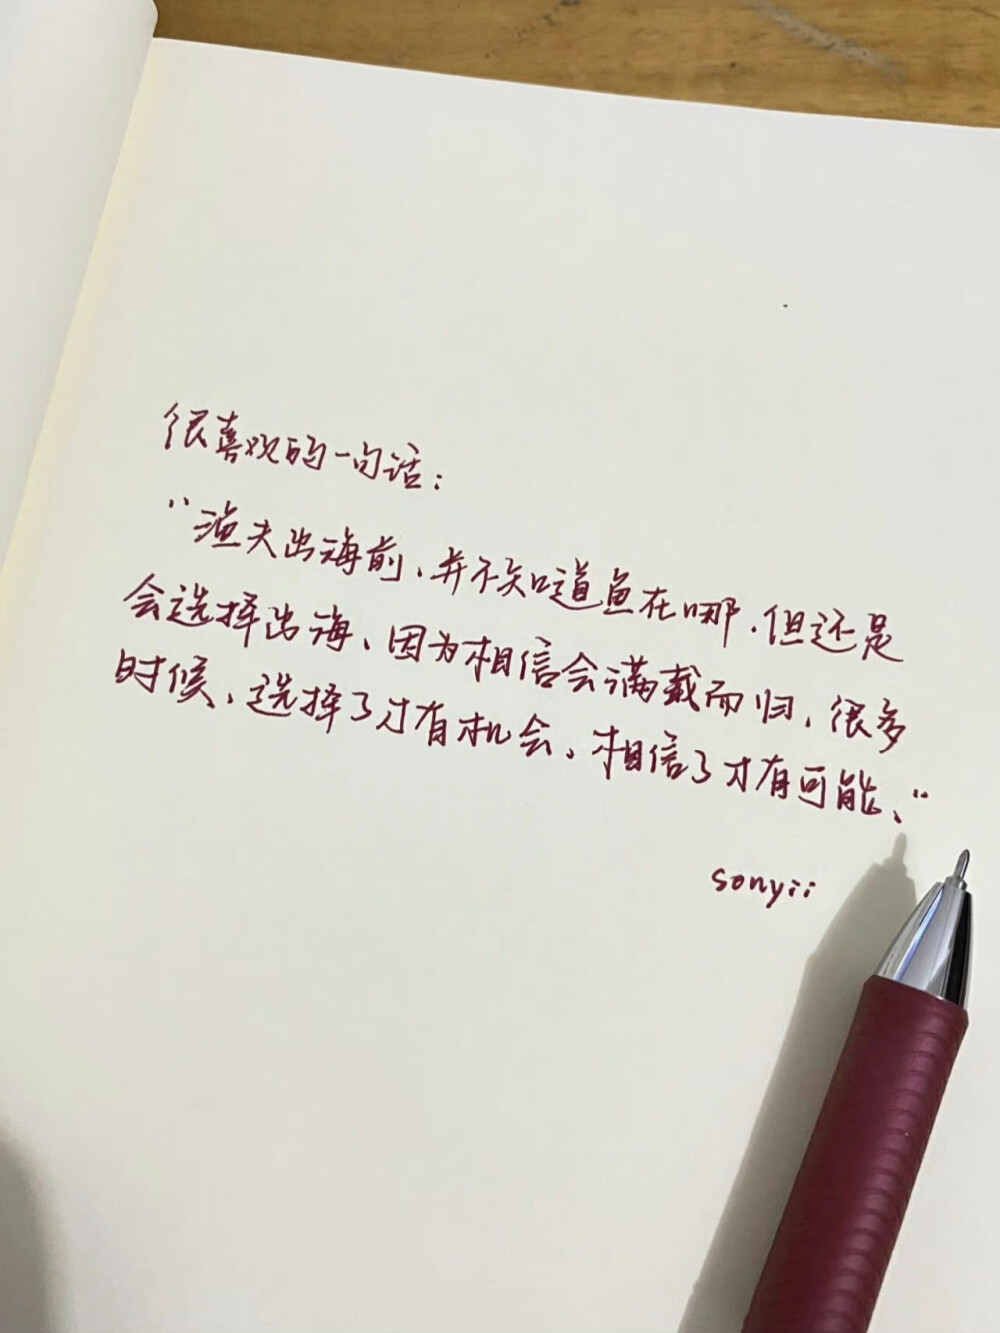 很喜欢的一句话：
“渔夫出海前、并不知道鱼在哪.但还是
会选择出海、因为相信会满载而归、很多
时候、选择了才有机会、相信了才有可能、”
sonyii